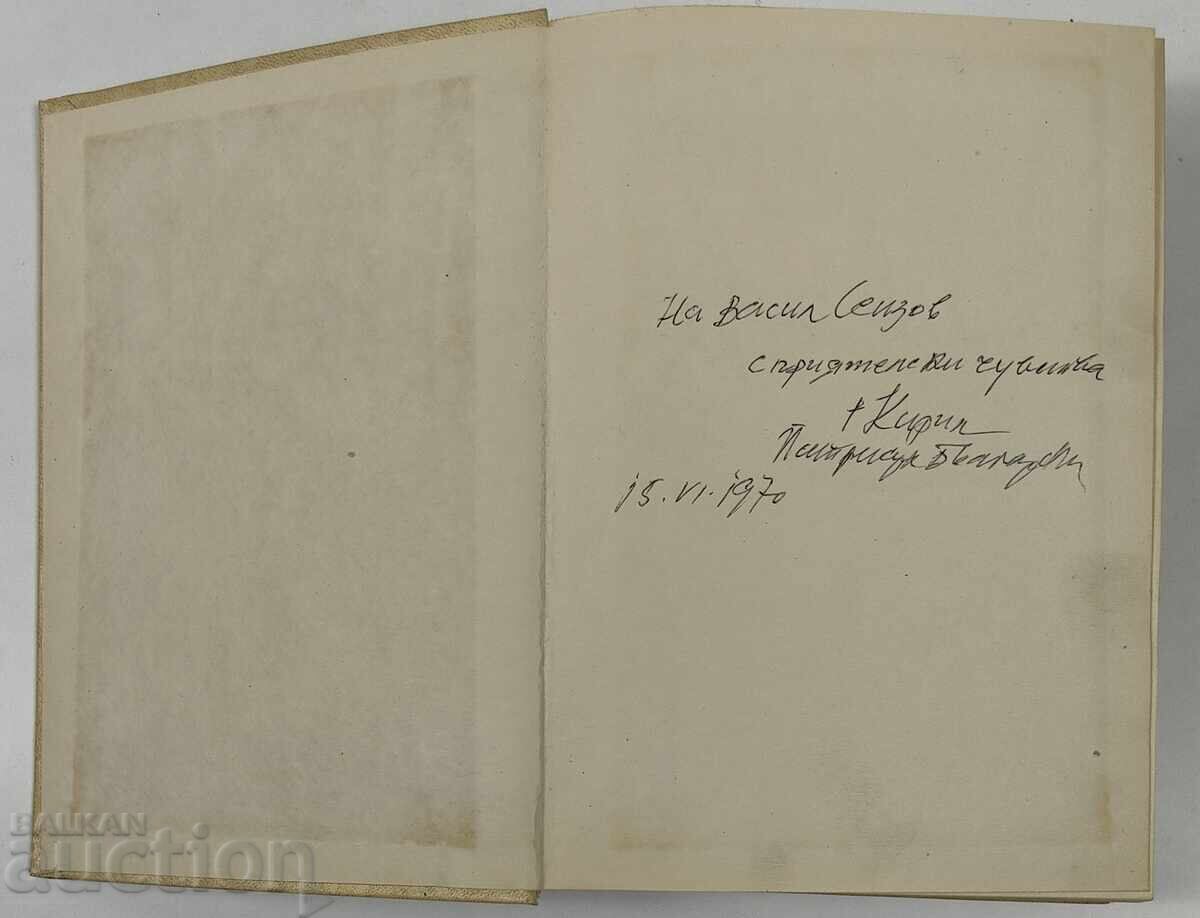 На Васил Сеизов
с приятелски чувства
† Кирил
Патриарх Български
15.VI.1970
BALKAN
auction